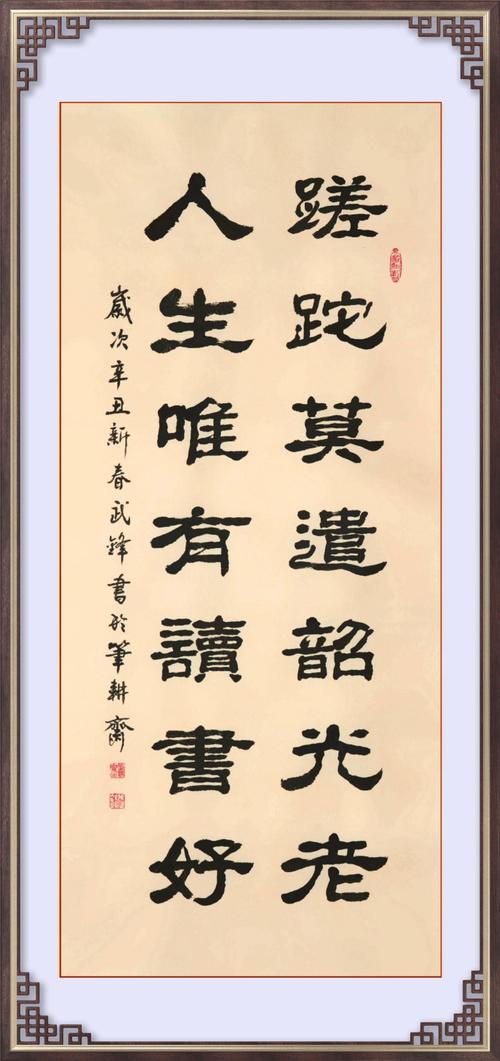 蹉跎莫遣韶光老
人生唯有讀書好
歲次辛丑新春武鋒書於筆耕齋